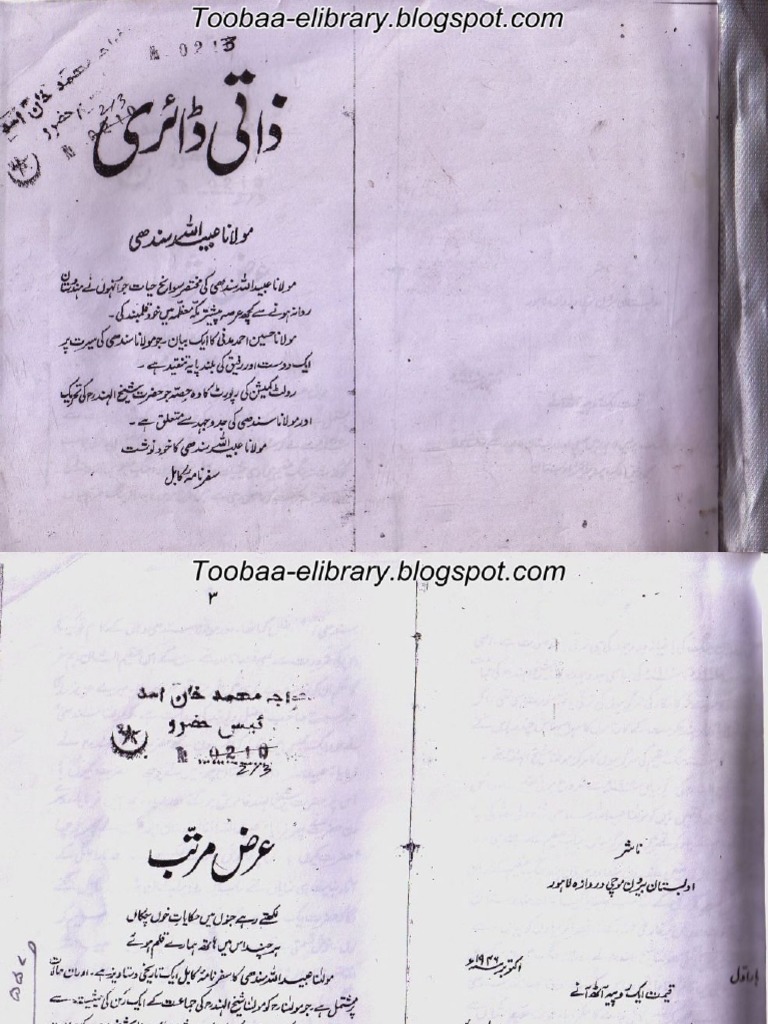 Toobaa-elibrary.blogspot.com
№ 0213
محمد خان اسد
حضرو
273
№ 0210
ذاتی ڈائری
مولانا عبید اللہ سندھی
مولانا عبید اللہ سندھی کی مختصر سوانح حیات جو انہوں نے ہندوستان
روانہ ہونے سے کچھ عرصہ پیشتر مکہ معظمہ میں خود قلمبند کی۔
مولانا حسین احمد مدنی کا ایک بیان جو مولانا سندھی کی سیرت پر
ایک دوست اور رفیق کی بلند پایہ تنقید ہے۔
رولٹ کمیشن کی رپورٹ کا وہ حصہ جو حضرت شیخ الہندؒ کی تحریک
اور مولانا سندھی کی جدوجہد سے متعلق ہے۔
مولانا عبید اللہ سندھی کا خود نوشت
سفر نامۂ کابل
Toobaa-elibrary.blogspot.com
۳
خواجہ محمد خان اسد
رئیس حضرو
№ 0210
273
عرض مرتب
لکھتے رہے جنوں میں حکایات خوں چکاں
ہر چند اس میں ہاتھ ہمارے قلم ہوئے
مولانا عبید اللہ سندھی کا سفر نامۂ کابل ایک تاریخی دستاویز ہے۔ اور ان حالات
پر مشتمل ہے، جو مولانا کو مولانا شیخ الہندؒ کی جماعت کے ایک رکن کی حیثیت سے
ناشر
ادبستان بیرون موچی دروازہ لاہور
اکتوبر ۱۹۴۶ء
بار اول
قیمت ایک روپیہ آٹھ آنے